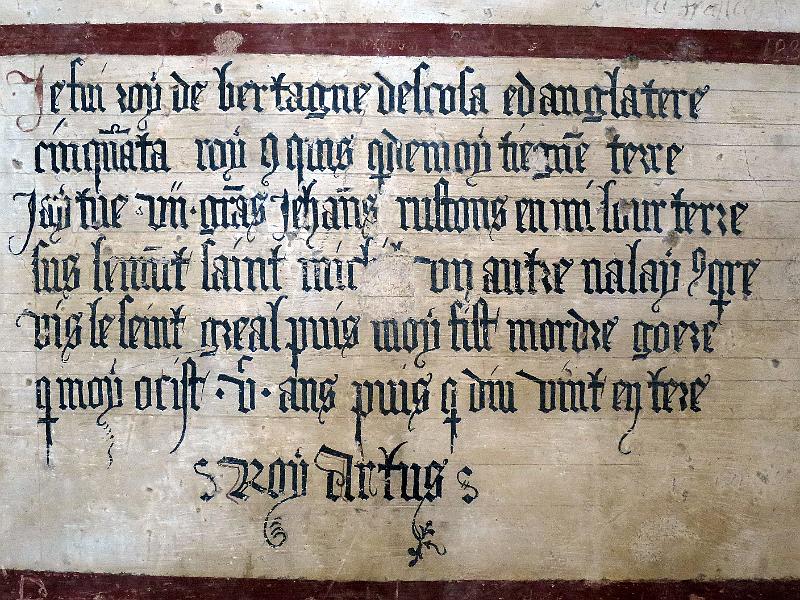 Je sui roy de bertagne descosa ed anglatere
cinquãta roy 9quis q̃ de moy tiegnẽ terre
Jay tue .vii. grãs Jehãns rustons en mi lour terre
sus le mũt saint vn autre nalay 9q̃re
vis le seint greal puis moy fist mordre goere
q̃ moy ocist .v. ans puis q̃ diu vint en tere
Roy Artus